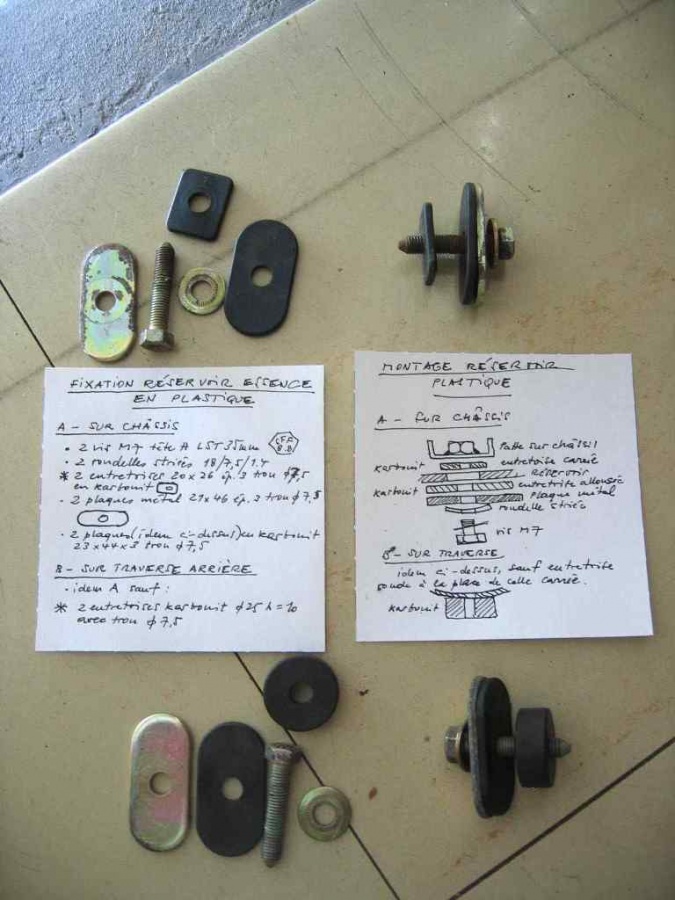 FIXATION RÉSERVOIR ESSENCE
EN PLASTIQUE
A - SUR CHÂSSIS
• 2 vis M7 tête H LST 35mm
• 2 rondelles striées 18/7,5/1.4
* 2 entretoises 20x26 ép. 3 trou ϕ7,5
en karbonit
• 2 plaques métal 21x46 ép. 3 trou ϕ7,5
• 2 plaques (idem ci-dessus) en karbonit
23x44x3 trou ϕ7,5
B - SUR TRAVERSE ARRIÈRE
• idem A sauf :
* 2 entretoises karbonit ϕ25 h=10
avec trou ϕ7,5
MONTAGE RÉSERVOIR
PLASTIQUE
A - SUR CHÂSSIS
Patte sur châssis
karbonit
entretoise carrée
réservoir
karbonit
entretoise allongée
plaque métal
rondelle striée
vis M7
B - SUR TRAVERSE
idem ci-dessus, sauf entretoise
ronde à la place de celle carrée.
karbonit